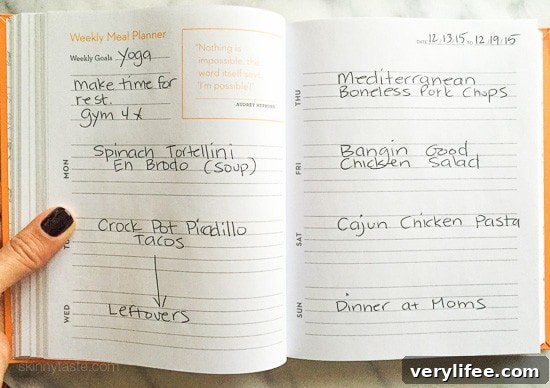 Weekly Meal Planner
Weekly Goals Yoga
make time for
rest.
gym 4x
"Nothing is
impossible, the
word itself says
'I'm possible'!"
AUDREY HEPBURN
MON
Spinach Tortellini
En Brodo (soup)
TU
Crock Pot Picadillo
Tacos
WED
Leftovers
skinnytaste.com
DATE 12.13.15 TO 12.19.15
THU
Mediterranean
Boneless Pork Chops
FRI
Bangin Good
Chicken Salad
SAT
Cajun Chicken Pasta
SUN
Dinner at Moms
verylifee.com